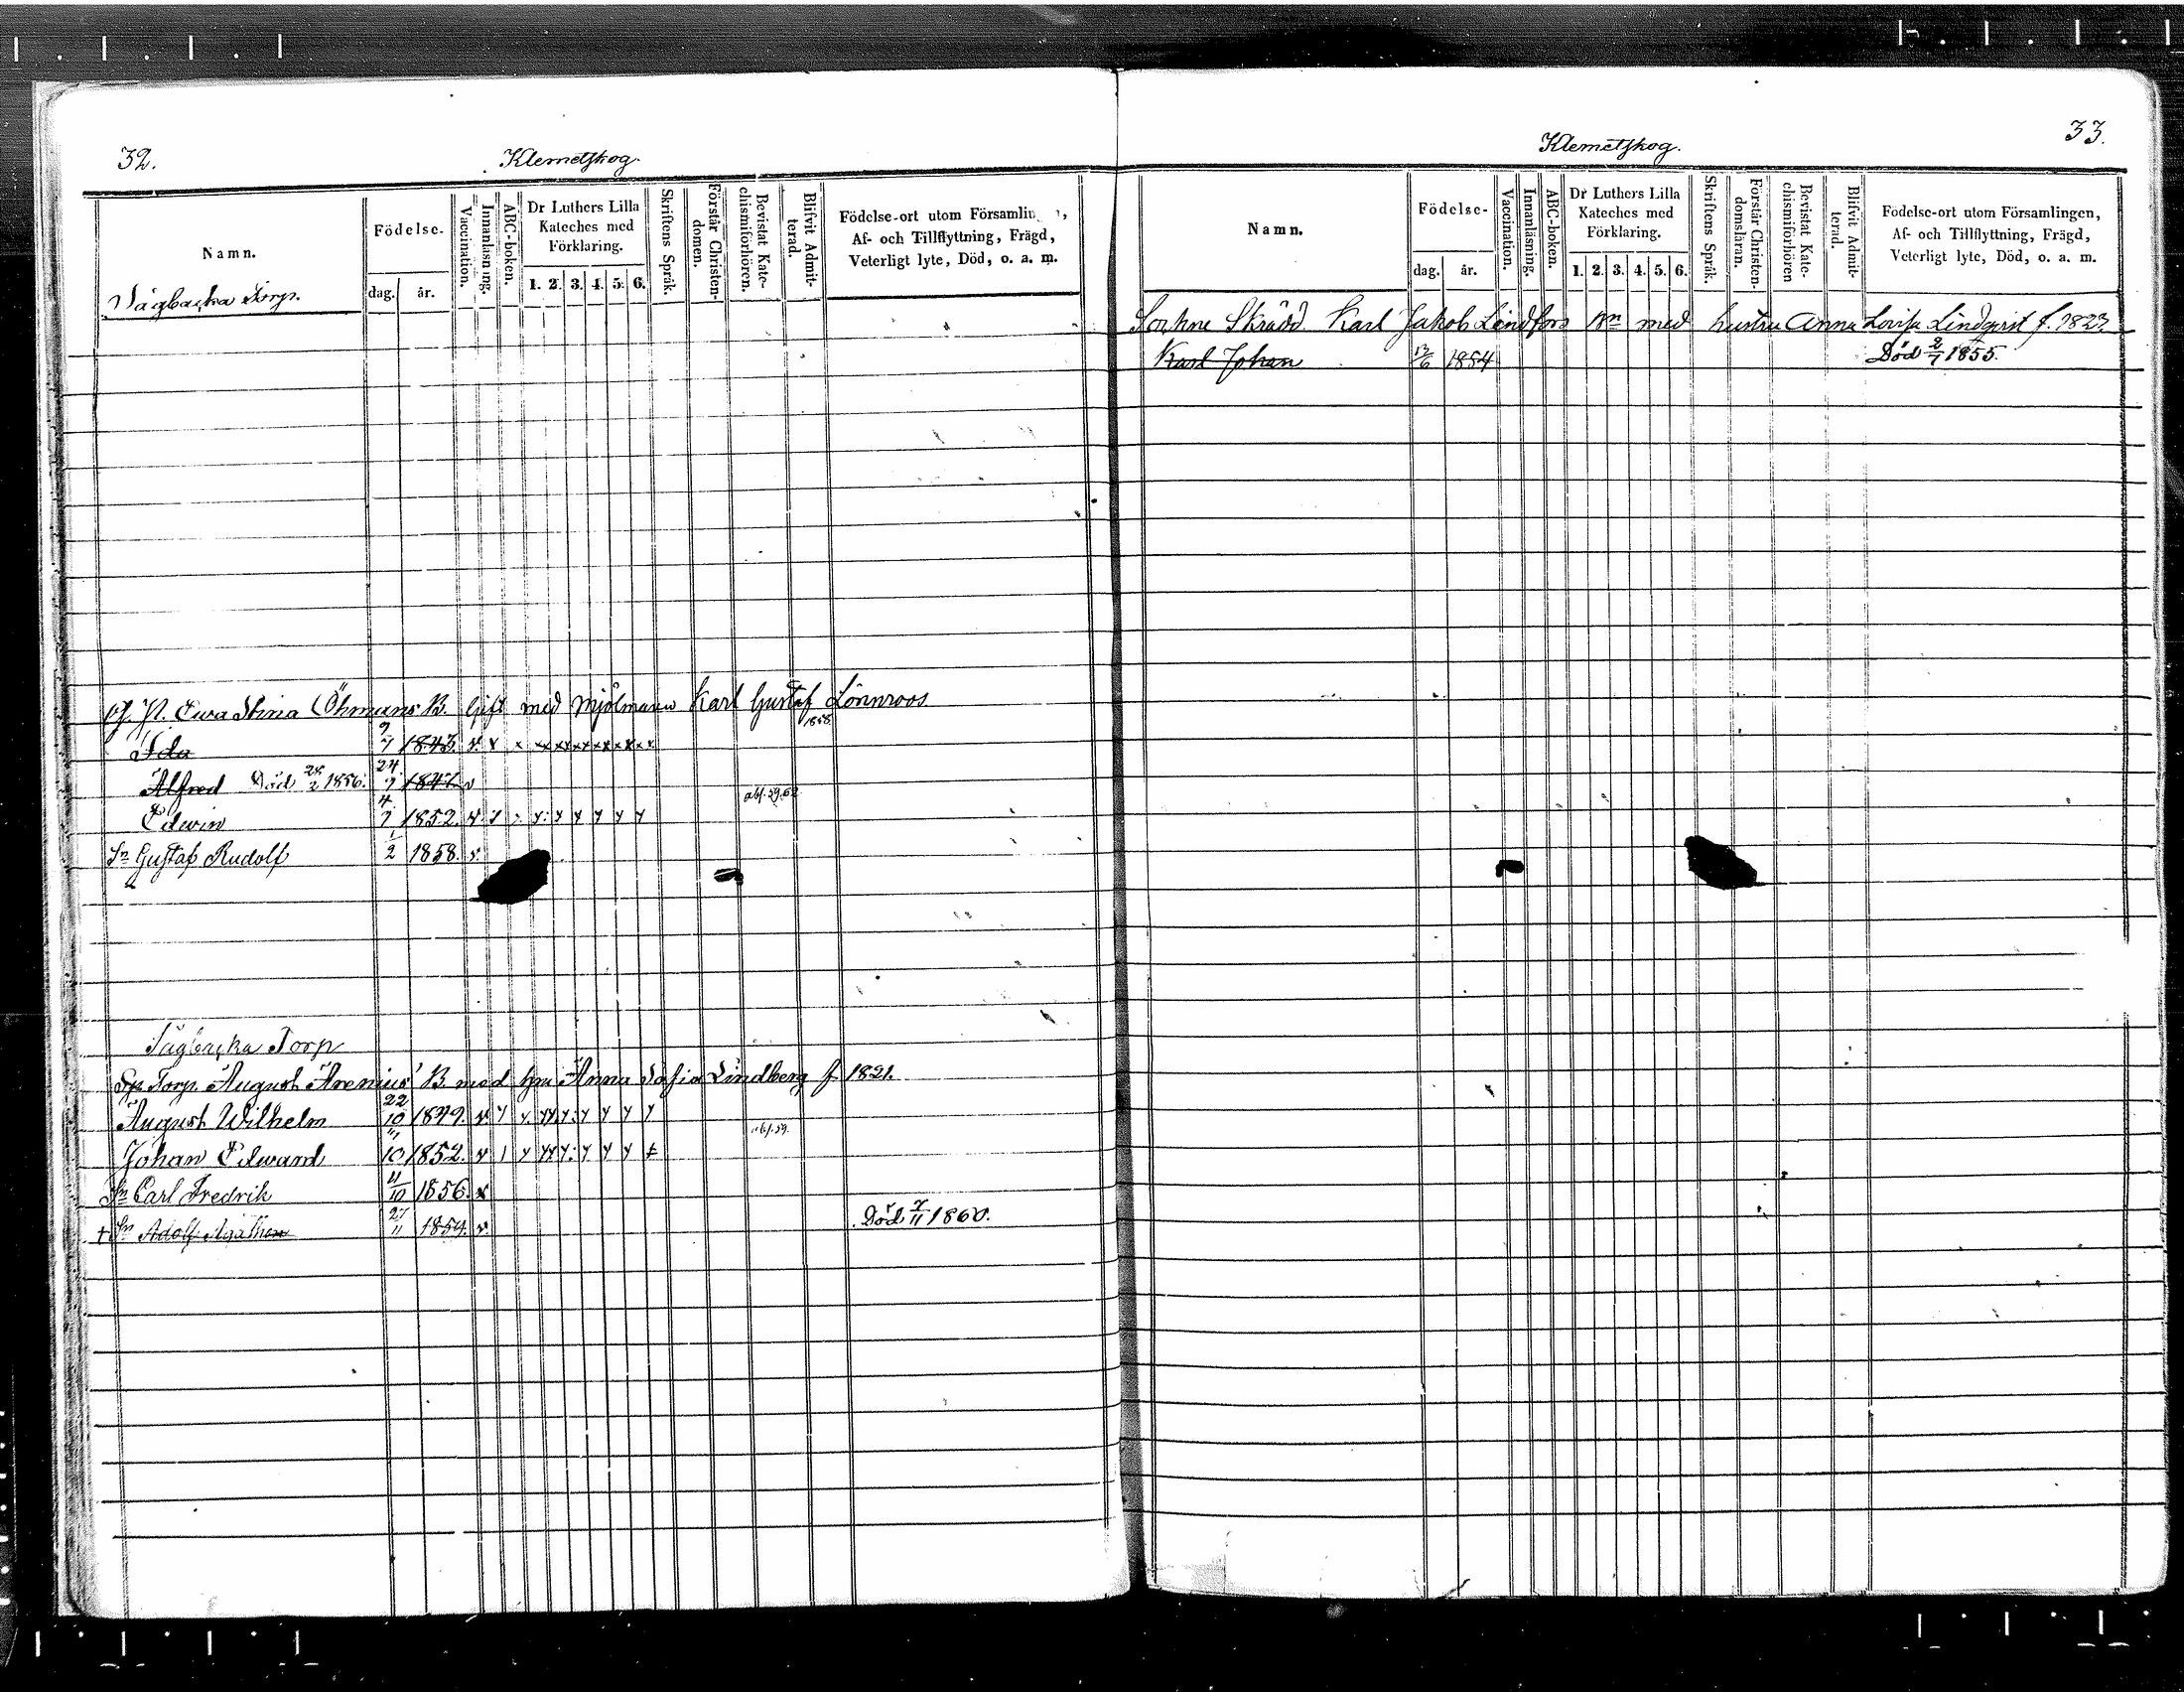 32.
Klemetskog.
Namn.
Födelse.
dag.
år.
Vaccination.
Innanläsning.
ABC-boken.
Dr Luthers Lilla
Kateches med
Förklaring.
1. 2. 3. 4. 5. 6.
Skriftens Språk.
Förstår Christen-
domen.
Bevistat Kate-
chismiförhören.
Blifvit Admit-
terad.
Födelse-ort utom Församlin ,
Af- och Tillflyttning, Frägd,
Veterligt lyte, Död, o. a. m.
Torp.
Ewa Stina Öhmans B. Gift med Mjölnaren Karl Gustaf Lönnroos
1858.
Ida 9/7 1843. v. x x xx xx xx xx xx x x
Alfred Död 28/2 1856. 24/7 1847 v
abf. 59. 62
Edwin 4/7 1852. v y y y y y y y
Sn Gustaf Rudolf 1/2 1858. v.
Torp
Torp. August Arenius' B. med hu Anna Sofia Lindberg f. 1821.
August Wilhelm 22/10 1849. v. y y. yy. y. y y y y
abf. 59.
Johan Edward 10 1852. v 1 y yy y. y y y
Sn Carl Fredrik 4/10 1856. x
+ Sn Adolf Agathon 27/11 1859. v. Död 7/11 1860.
Klemetskog.
33.
Namn.
Födelse-
dag.
år.
Vaccination.
Innanläsning.
ABC-boken.
Dr Luthers Lilla
Kateches med
Förklaring.
1. 2. 3. 4. 5. 6.
Skriftens Språk.
Förstår Christen-
domsläran.
Bevistat Kate-
chismiförhören
Blifvit Admit-
terad.
Födelse-ort utom Församlingen,
Af- och Tillflyttning, Frägd,
Veterligt lyte, Död, o. a. m.
Sockne Skrädd. Karl Jakob Lindfors Bn med hustru Anna Lovisa Lindqvist f. 1823
Karl Johan 13/6 1854 Död 2/7 1855.